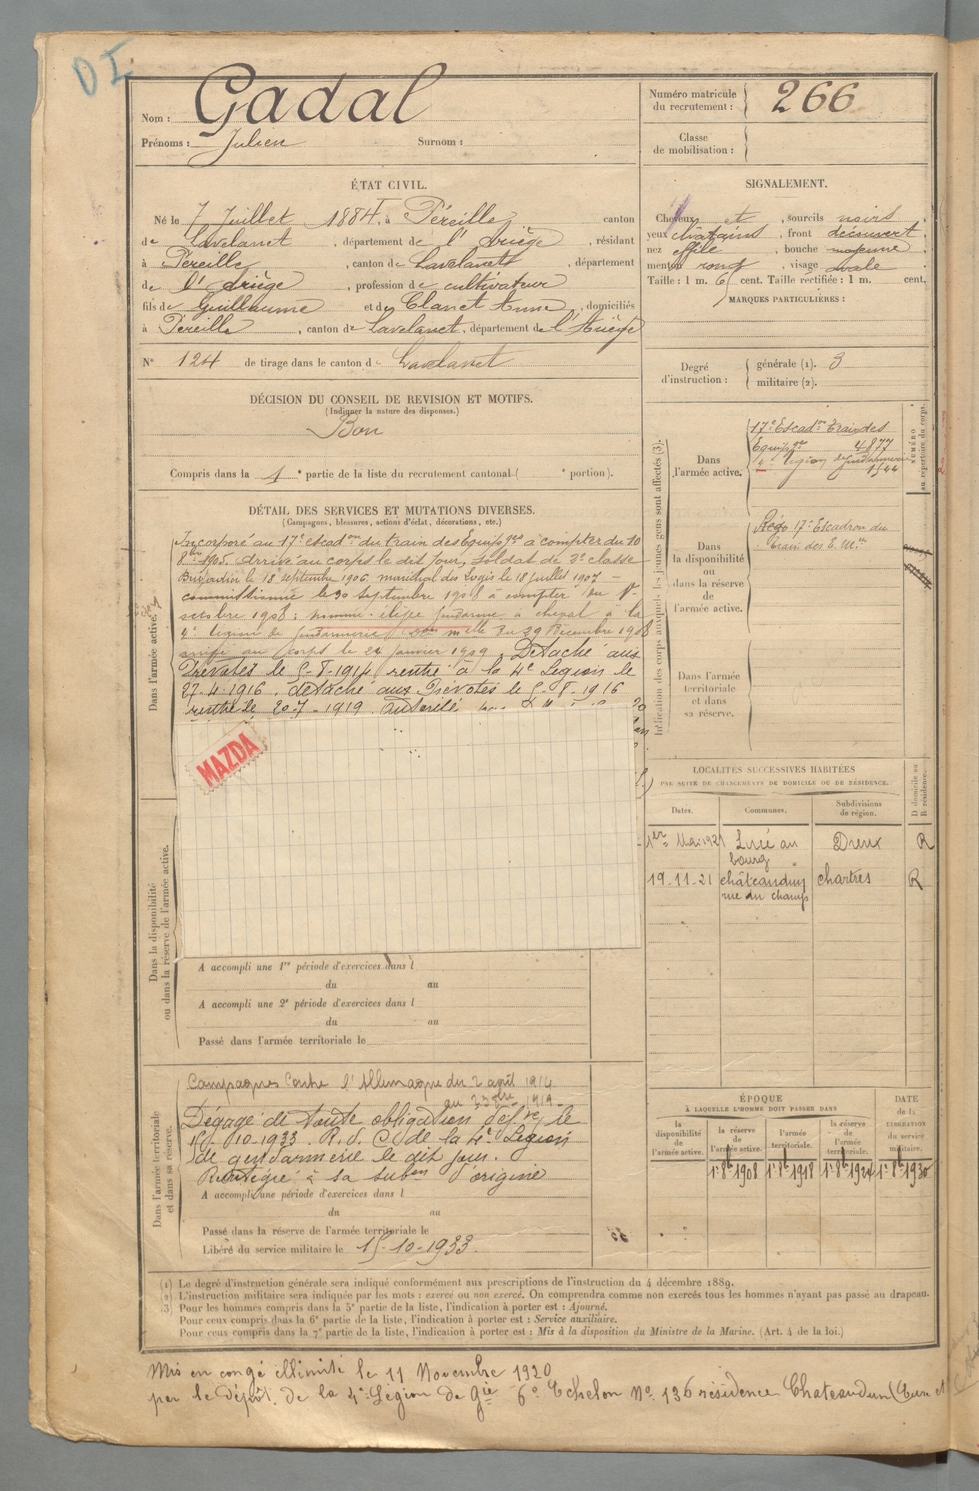 DI
Nom : Gadal
Prénoms : Julien Surnom :
Numéro matricule du recrutement : 266
Classe de mobilisation :
ÉTAT CIVIL.
Né le 7 Juillet 1884, à Péreille canton
de Lavelanet, département de l'Ariège, résidant
à Péreille, canton de Lavelanet, département
de l'Ariège, profession de cultivateur
fils de Guillaume et de Clanet Anne, domiciliés
à Péreille, canton de Lavelanet, département de l'Ariège
N° 124 de tirage dans le canton de Lavelanet
SIGNALEMENT.
Cheveux et, sourcils noirs
yeux châtains, front découvert
nez effilé, bouche moyenne
menton rond, visage ovale
Taille : 1 m. 6 cent. Taille rectifiée : 1 m. cent.
MARQUES PARTICULIÈRES :
Degré d'instruction : générale (1). 3
militaire (2).
DÉCISION DU CONSEIL DE REVISION ET MOTIFS.
(Indiquer la nature des dispenses.)
Bon
Compris dans la 1e partie de la liste du recrutement cantonal ( e portion).
DÉTAIL DES SERVICES ET MUTATIONS DIVERSES.
(Campagnes, blessures, actions d'éclat, décorations, etc.)
Dans l'armée active.
Incorporé au 17e escadon du train des Equip. à compter du 10
8bre 1905. Arrivé au corps le dit jour, Soldat de 2e classe
Brigadier le 18 septembre 1906. maréchal des logis le 18 juillet 1907 –
commissionné le 30 septembre 1908 à compter du 1er
octobre 1908 : nommé élève gendarme à cheval à la
4e légion de gendarmerie mlle du 29 Décembre 1908
arrivé au corps le 24 janvier 1909. Détaché aux
Prévotés le 5-8-1914, rentré à la 4e Légion le
27-4-1916. détaché aux Prévotés le 5-8-1916
rentré le 20-7-1919.
MAZDA
Indication des corps auxquels les jeunes gens sont affectés (3).
Dans l'armée active.
17e Escadon Train des
Equip. 4877
4e légion de Gendarmerie
1544
NUMÉRO au répertoire du corps.
Dans la disponibilité ou dans la réserve de l'armée active.
17e Escadron du
train des E. Mres
Dans l'armée territoriale et dans sa réserve.
LOCALITÉS SUCCESSIVES HABITÉES
PAR SUITE DE CHANGEMENTS DE DOMICILE OU DE RÉSIDENCE.
Dates. Communes. Subdivisions de région. D domicile ou R résidence.
1er Mai 1921 Lucé au bourg Dreux R
19-11-21 châteaudun rue du champ chartres R
Dans la disponibilité ou dans la réserve de l'armée active.
A accompli une 1re période d'exercices dans l
du au
A accompli une 2e période d'exercices dans l
du au
Passé dans l'armée territoriale le
Dans l'armée territoriale et dans sa réserve.
Campagnes contre l'Allemagne du 2 août 1914
au 23 8bre 1919.
Dégagé de toute obligation milre le
15-10-1933. R.d.C. de la 4e Légion
de gendarmerie le dit jour.
Réintégré à sa subon d'origine
A accompli une période d'exercices dans l
du au
Passé dans la réserve de l'armée territoriale le
Libéré du service militaire le 15-10-1933.
ÉPOQUE
À LAQUELLE L'HOMME DOIT PASSER DANS
la disponibilité de l'armée active. la réserve de l'armée active. l'armée territoriale. la réserve de l'armée territoriale.
DATE de la LIBÉRATION du service militaire.
1er 8bre 1908 1er 8bre 1918 1er 8bre 1924 1er 8bre 1930
(1) Le degré d'instruction générale sera indiqué conformément aux prescriptions de l'instruction du 4 décembre 1889.
(2) L'instruction militaire sera indiquée par les mots : exercé ou non exercé. On comprendra comme non exercés tous les hommes n'ayant pas passé au drapeau.
(3) Pour les hommes compris dans la 5e partie de la liste, l'indication à porter est : Ajourné.
Pour ceux compris dans la 6e partie de la liste, l'indication à porter est : Service auxiliaire.
Pour ceux compris dans la 7e partie de la liste, l'indication à porter est : Mis à la disposition du Ministre de la Marine. (Art. 4 de la loi.)
Mis en congé illimité le 11 Novembre 1920
par le dépôt de la 4e Légion de Gie 6e Echelon No 136 résidence Chateaudun (Eure et